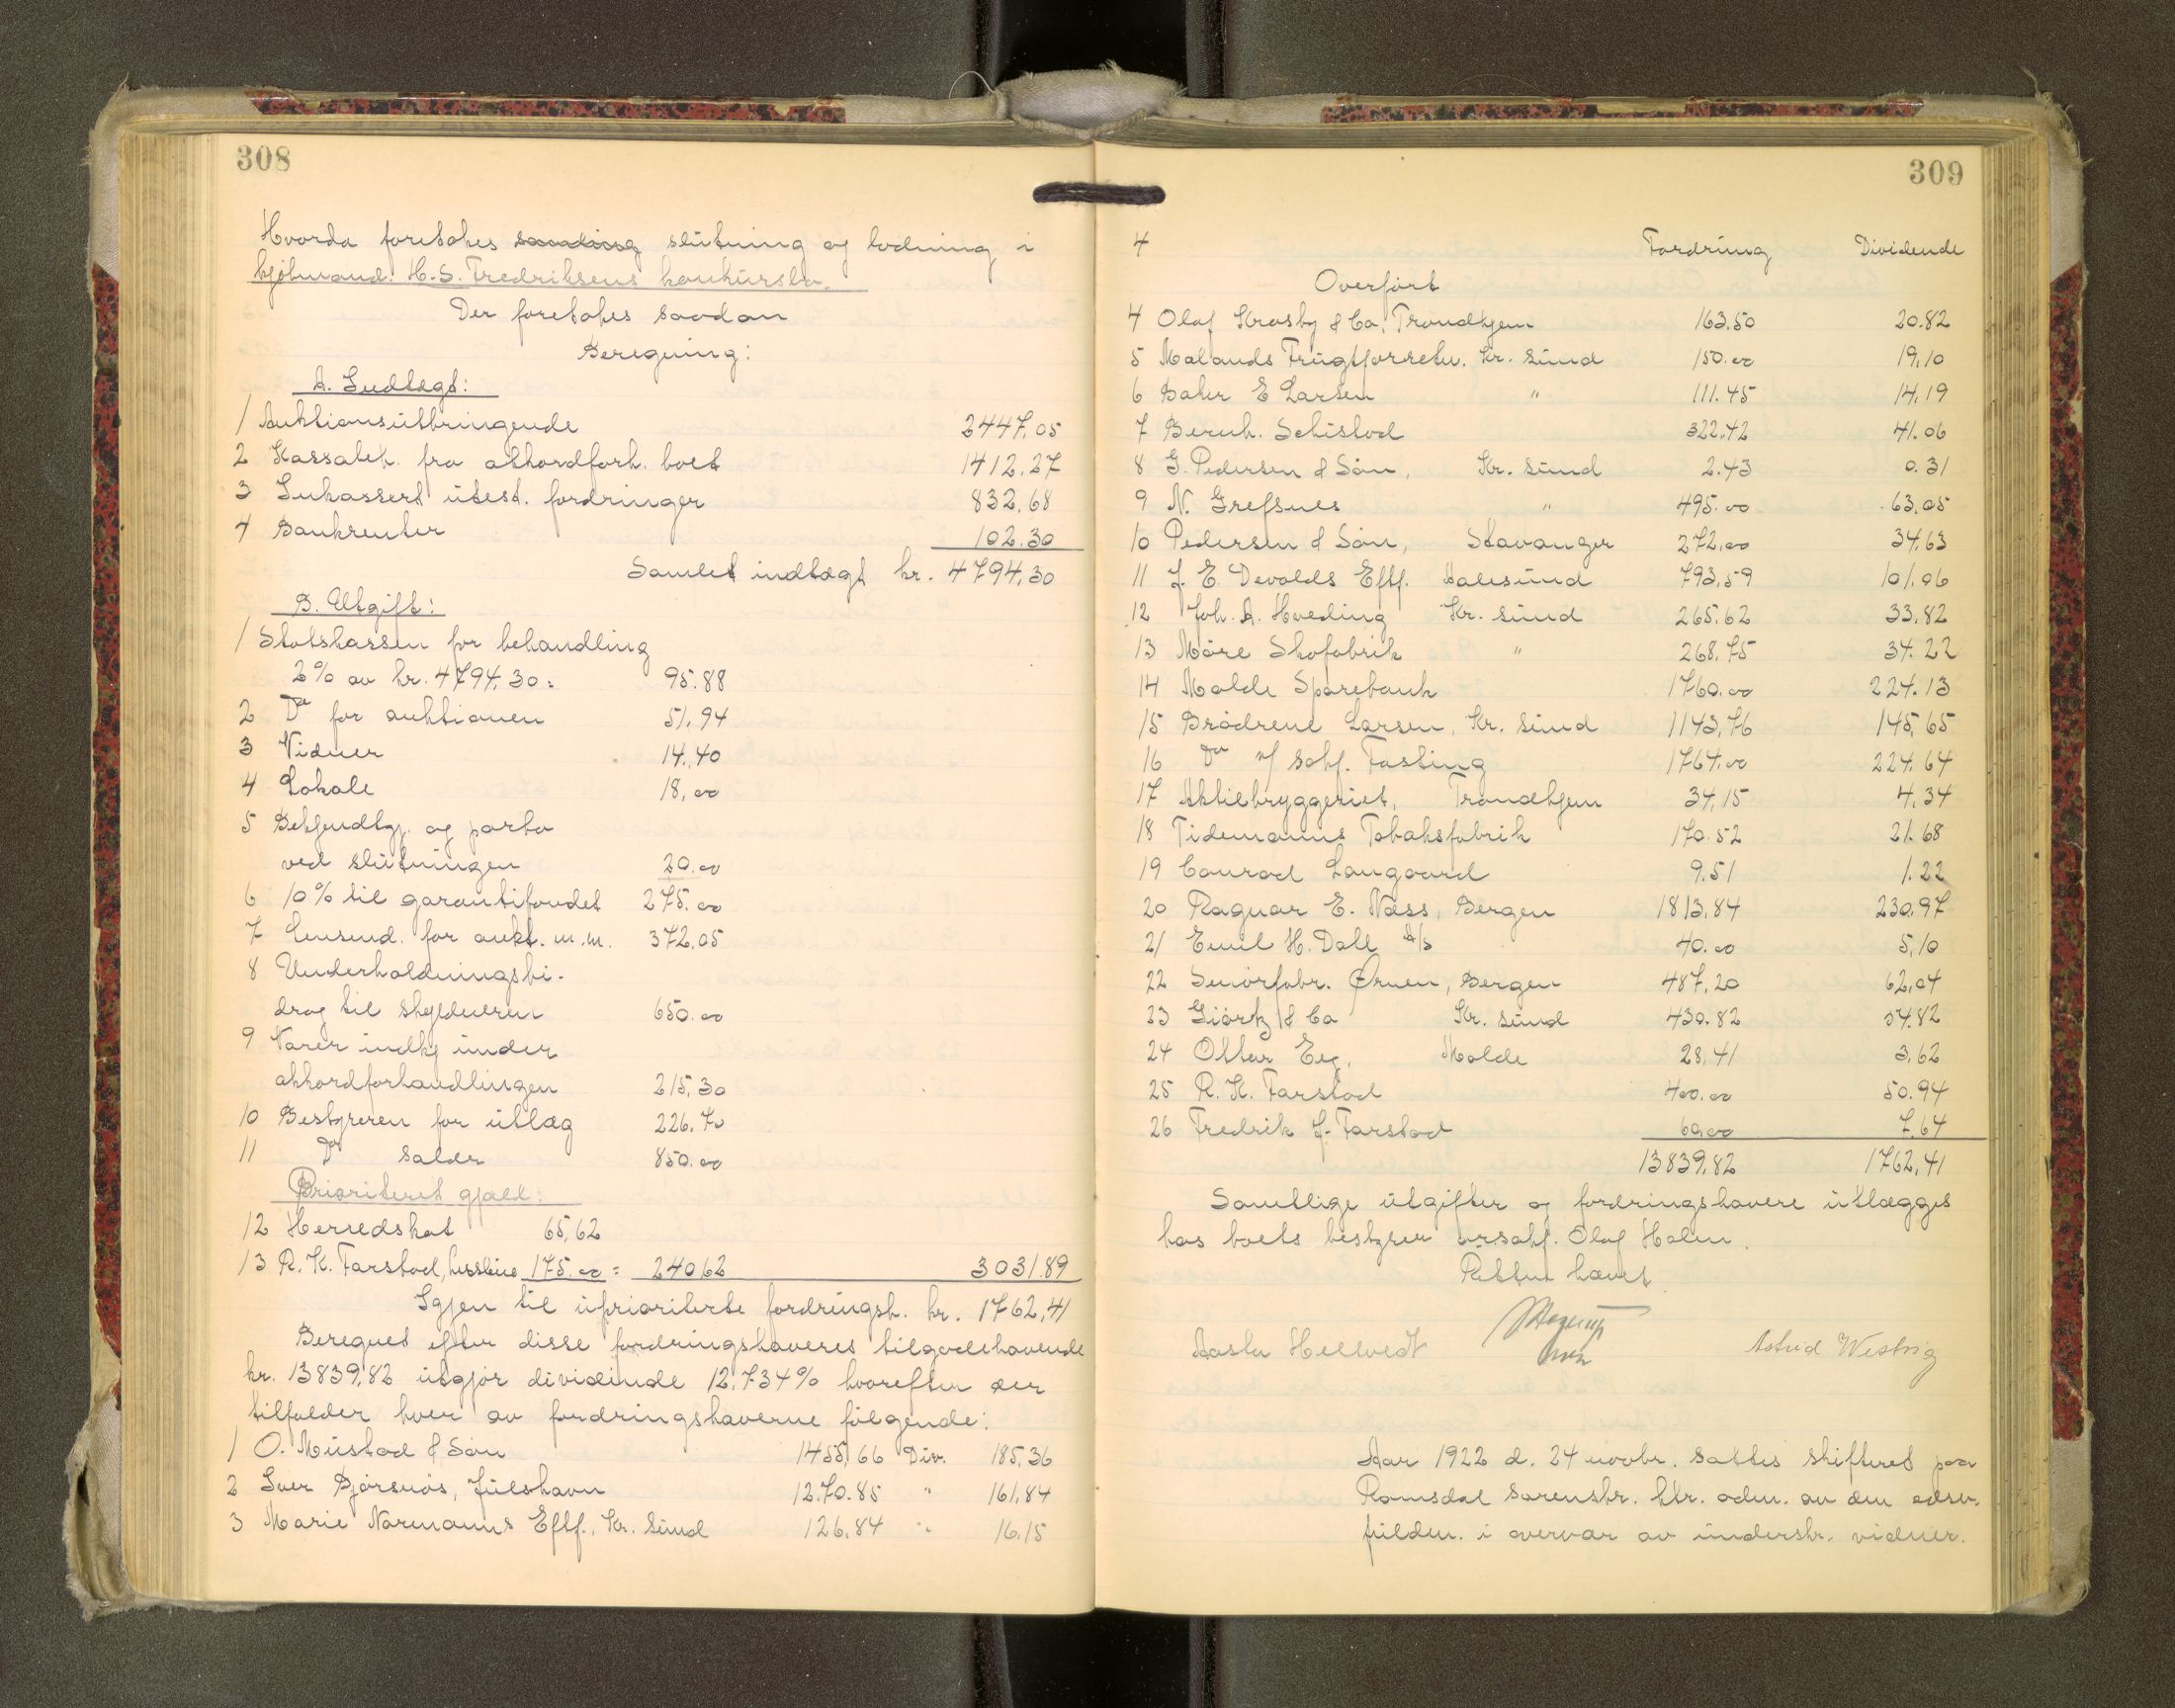 308
Hvorda foretokes samling slutning og lodning i
kjøbmand. H. S. Fredriksens konkursbo.
Der foretokes saadan
Beregning:
A. Indtægt:
1 Auktionsutbringende 2447,05
2 Kassabeh. fra akkordforh. boet 1412.27
3 Inkassert utest. fordringer 832,68
4 Bankrenter 102.30
Samlet indtægt kr. 4794,30
B. Utgift:
1 Statskassen for behandling
2% av kr. 4794,30 = 95.88
2 Do for auktionen 51,94
3 Vidner 14,40
4 Lokale 18,00
5 Bekjendtgj. og porto
ved slutningen 20.00
6 10% til garantifondet 275.00
7 Lensmd. for aukt. m.m. 372,05
8 Underholdningsbi-
drag til skyldneren 650.00
9 Varer indkj under
akkordforhandlingen 215,30
10 Bestyreren for utlæg 226.70
11 Do salær 850.00
Prioritert gjæld:
12 Herredskat 65,62
13 R. K. Farstad, husleie 175.00 = 240 62 3031.89
Igjen til uprioriterte fordringsh. kr. 1762,41
Beregnet efter disse fordringshaveres tilgodehavende
kr. 13839,82 utgjør dividende 12,734% hvorefter der
tilfalder hver av fordringshaverne følgende:
1 O. Mustad & Søn 1455,66 Div. 185,36
2 Iver Bjørsnøs, Julshavn 1270.85 " 161,84
3 Marie Normanns Eftf., Kr. Sund 126,84 " 16.15
309
4 Fordring Dividende
Overført
4 Olaf Krosby & Co, Trondhjem 163.50 20.82
5 Malands Frugtforretn. Kr. Sund 150.00 19,10
6 Baker E Larsen " 111.45 14,19
7 Bernh. Schistad 322.42 41.06
8 G. Pedersen & Søn, Kr. Sund 2.43 0.31
9 N. Grefsnes " 495.00 63,05
10 Pedersen & Søn, Stavanger 272,00 34,63
11 J. E. Devolds Eftf. Aalesund 793,59 101.06
12 Joh. A. Hveding Kr. Sund 265,62 33,82
13 Møre Skofabrik " 268,75 34.22
14 Molde Sparebank 1760.00 224.13
15 Brødrene Larsen, Kr. Sund 1143,76 145,65
16 Do v/ sakf. Fasting 1764.00 224.64
17 Aktiebryggeriet, Trondhjem 34,15 4,34
18 Tidemanns Tobaksfabrik 170.52 21.68
19 Conrad Langaard 9.51 1.22
20 Ragnar E. Næss, Bergen 1813,84 230,97
21 Emil H. Dahl A/s 40.00 5,10
22 Smørfabr. Ørnen, Bergen 487,20 62,04
23 Giørtz & Co Kr. Sund 430.82 54.82
24 Ottar Eeg, Molde 28,41 3,62
25 R. K. Farstad 400.00 50.94
26 Fredrik J. Farstad 60,00 7.64
13839,82 1762,41
Samtlige utgifter og fordringshavere utlægges
hos boets bestyrer orsakf. Olaf Holm.
Retten hævet
Aasta Hellvedt Astrid Westvig
Aar 1922 d. 24 novbr. sattes skifteret paa
Romsdal sorenskr. ktr. adm. av den edsv.
fuldm. i overvær av underskr. vidner.